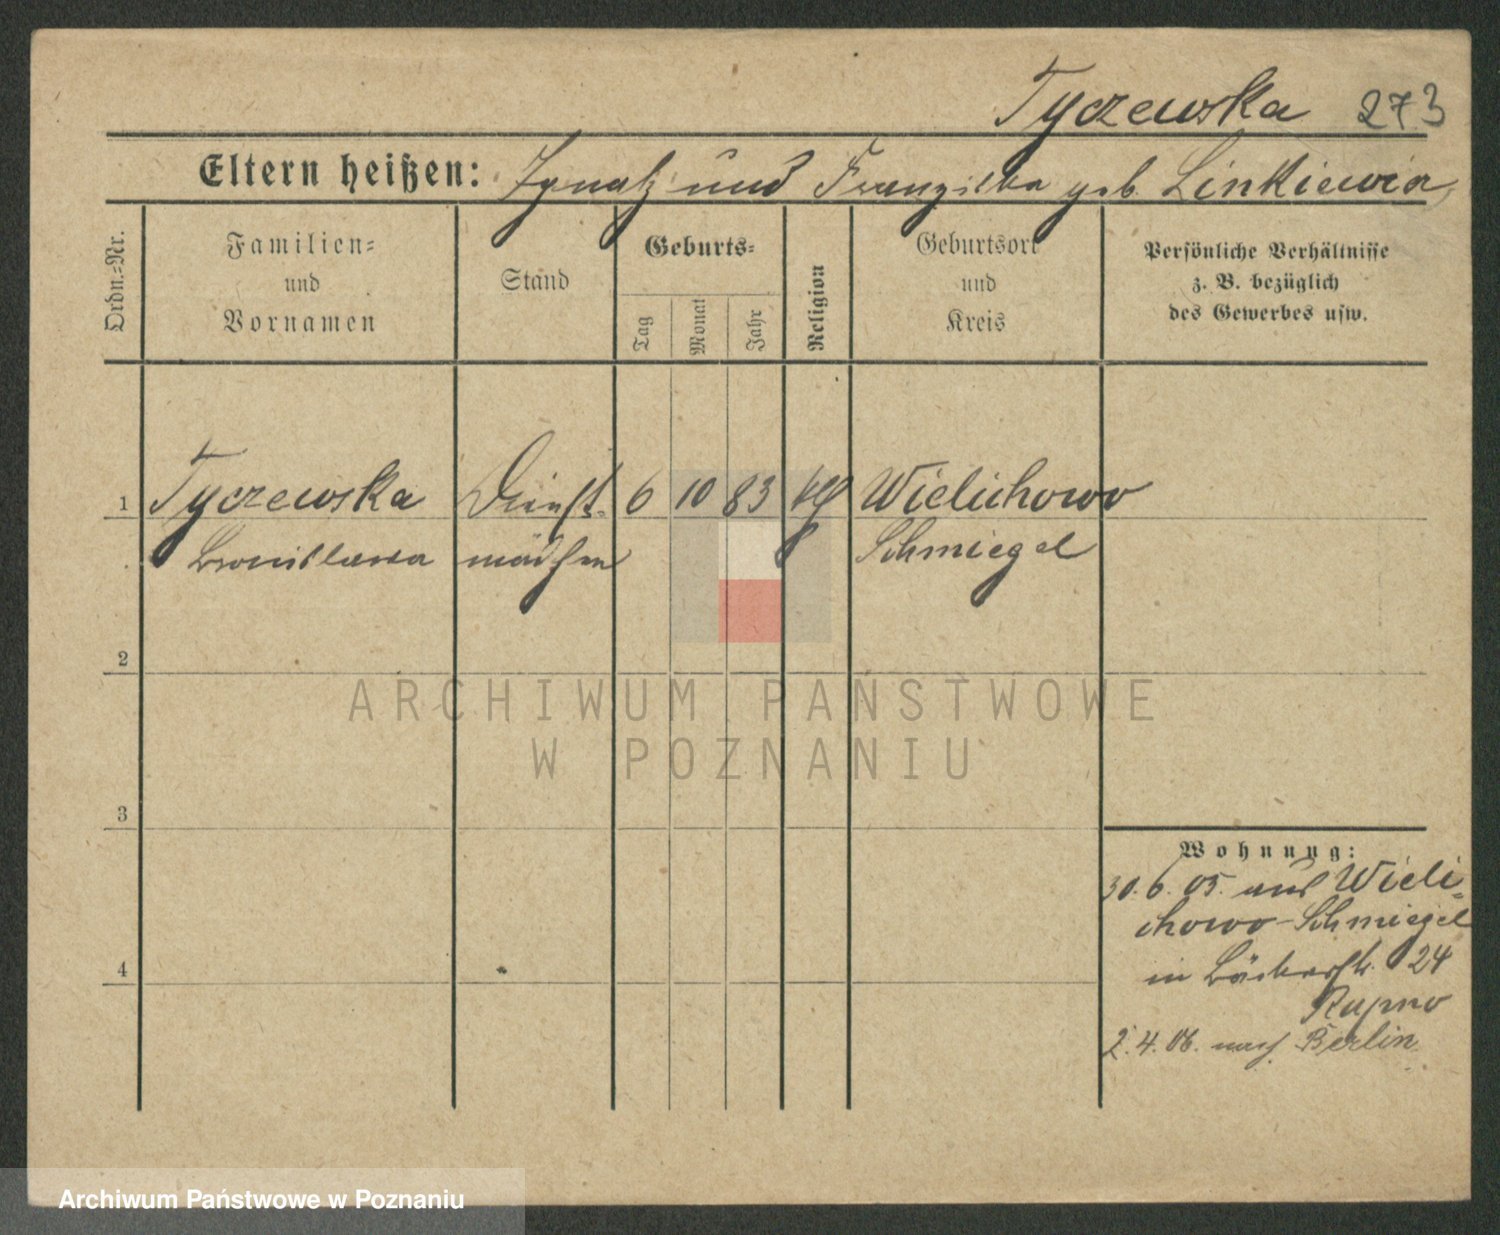 Tyczewska 273
Eltern heißen: Ignatz und Franziska geb. Linkiewicz
Ordn.-Nr.
Familien-
und
Vornamen
Stand
Geburts-
Tag
Monat
Jahr
Religion
Geburtsort
und
Kreis
Persönliche Verhältnisse
z. B. bezüglich
des Gewerbes usw.
1 Tyczewska Dienst- 6 10 83 kath Wielichowo
Bronislawa mädchen Schmiegel
2
3
4
Wohnung:
30.6.05. aus Wieli-
chowo-Schmiegel
in Bäckerstr. 24
2.4.06. nach Berlin
ARCHIWUM PAŃSTWOWE
W POZNANIU
Archiwum Państwowe w Poznaniu